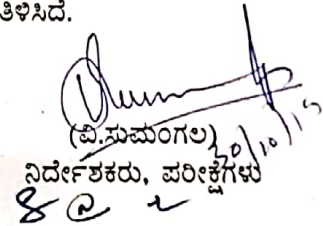 ತಿಳಿಸಿದೆ.
(ವಿ.ಸುಮಂಗಲ)
20/10/15
ನಿರ್ದೇಶಕರು, ಪರೀಕ್ಷೆಗಳು